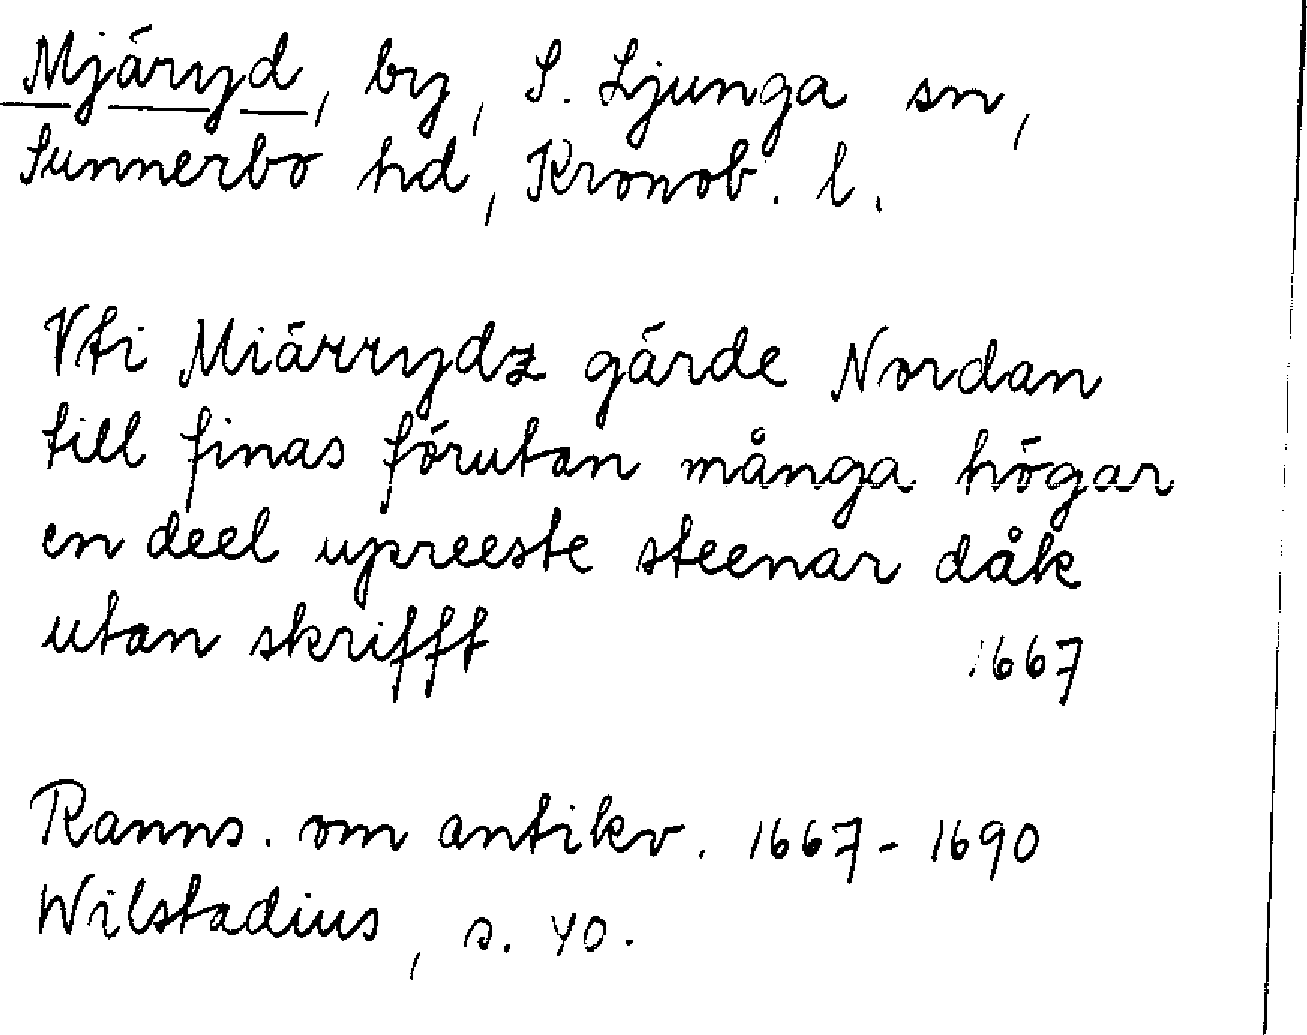 Mjäryd, by, S. Ljunga sn,
Sunnerbo hd, Kronob. l.
Vti Miärrydz gärde Nordan
till finas förutan många högar
en deel upreeste steenar dåk
utan skrifft 1667
Ranns. om antikv. 1667-1690
Wilstadius, s. 40.